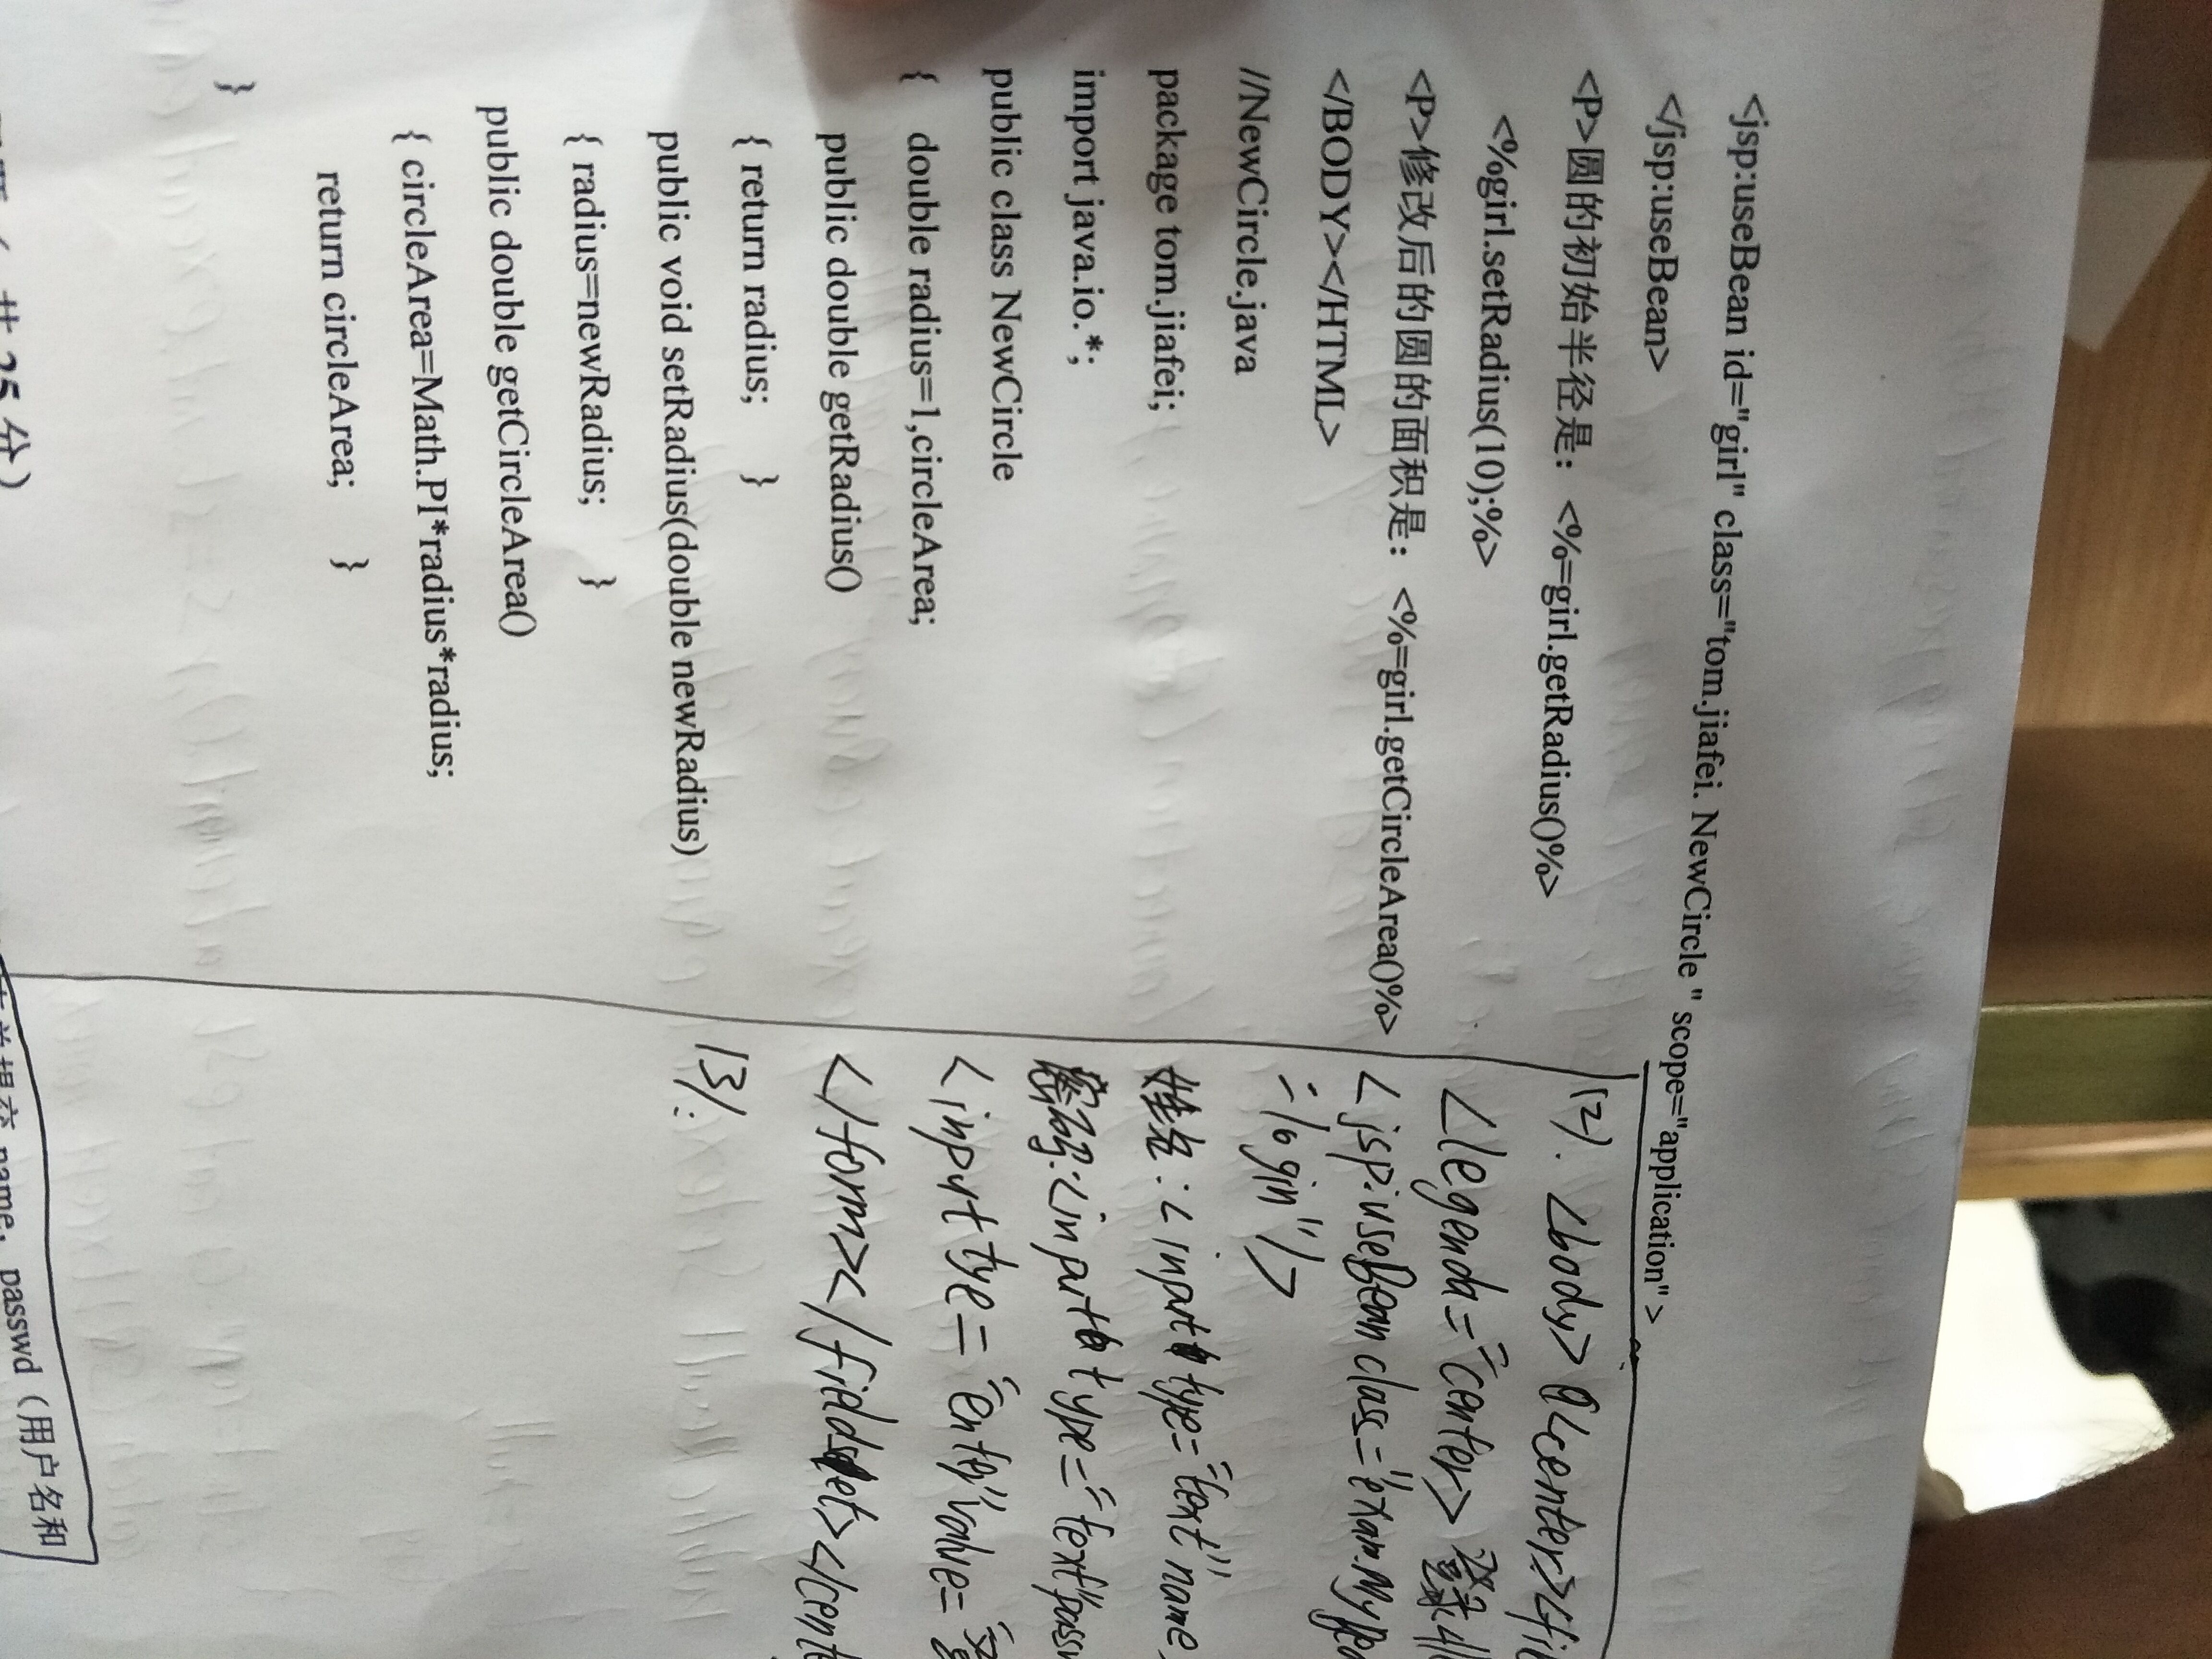 <jsp:useBean id="girl" class="tom.jiafei. NewCircle " scope="application" >
</jsp:useBean>
<P>圆的初始半径是：<%=girl.getRadius()%>
<%girl.setRadius(10);%>
<P>修改后的圆的面积是：<%=girl.getCircleArea()%>
</BODY></HTML>
//NewCircle.java
package tom.jiafei;
import java.io.*;
public class NewCircle
{ double radius=1,circleArea;
public double getRadius()
{ return radius; }
public void setRadius(double newRadius)
{ radius=newRadius; }
public double getCircleArea()
{ circleArea=Math.PI*radius*radius;
return circleArea; }
}
共 25 分）
name, passwd（用户名和
(2). <body> <center><fi
<legend="center> 登录
<jsp:useBean class="exam.My
="login"/>
姓名: <input type="text" name
密码:<input type="text"
<input tye="enter" value="登
</form></fieldset></cent
(3).